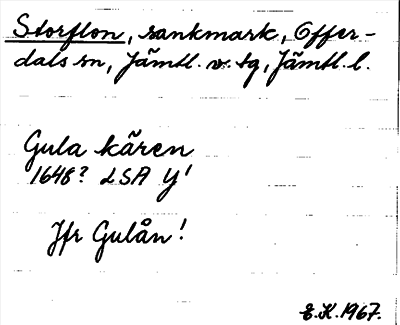 Storflon, sankmark, Offer-
dals sn, Jämtl. v. tg, Jämtl. l.
Gula kären
1648? LSA Y'
Jfr Gulån!
E.K. 1967.